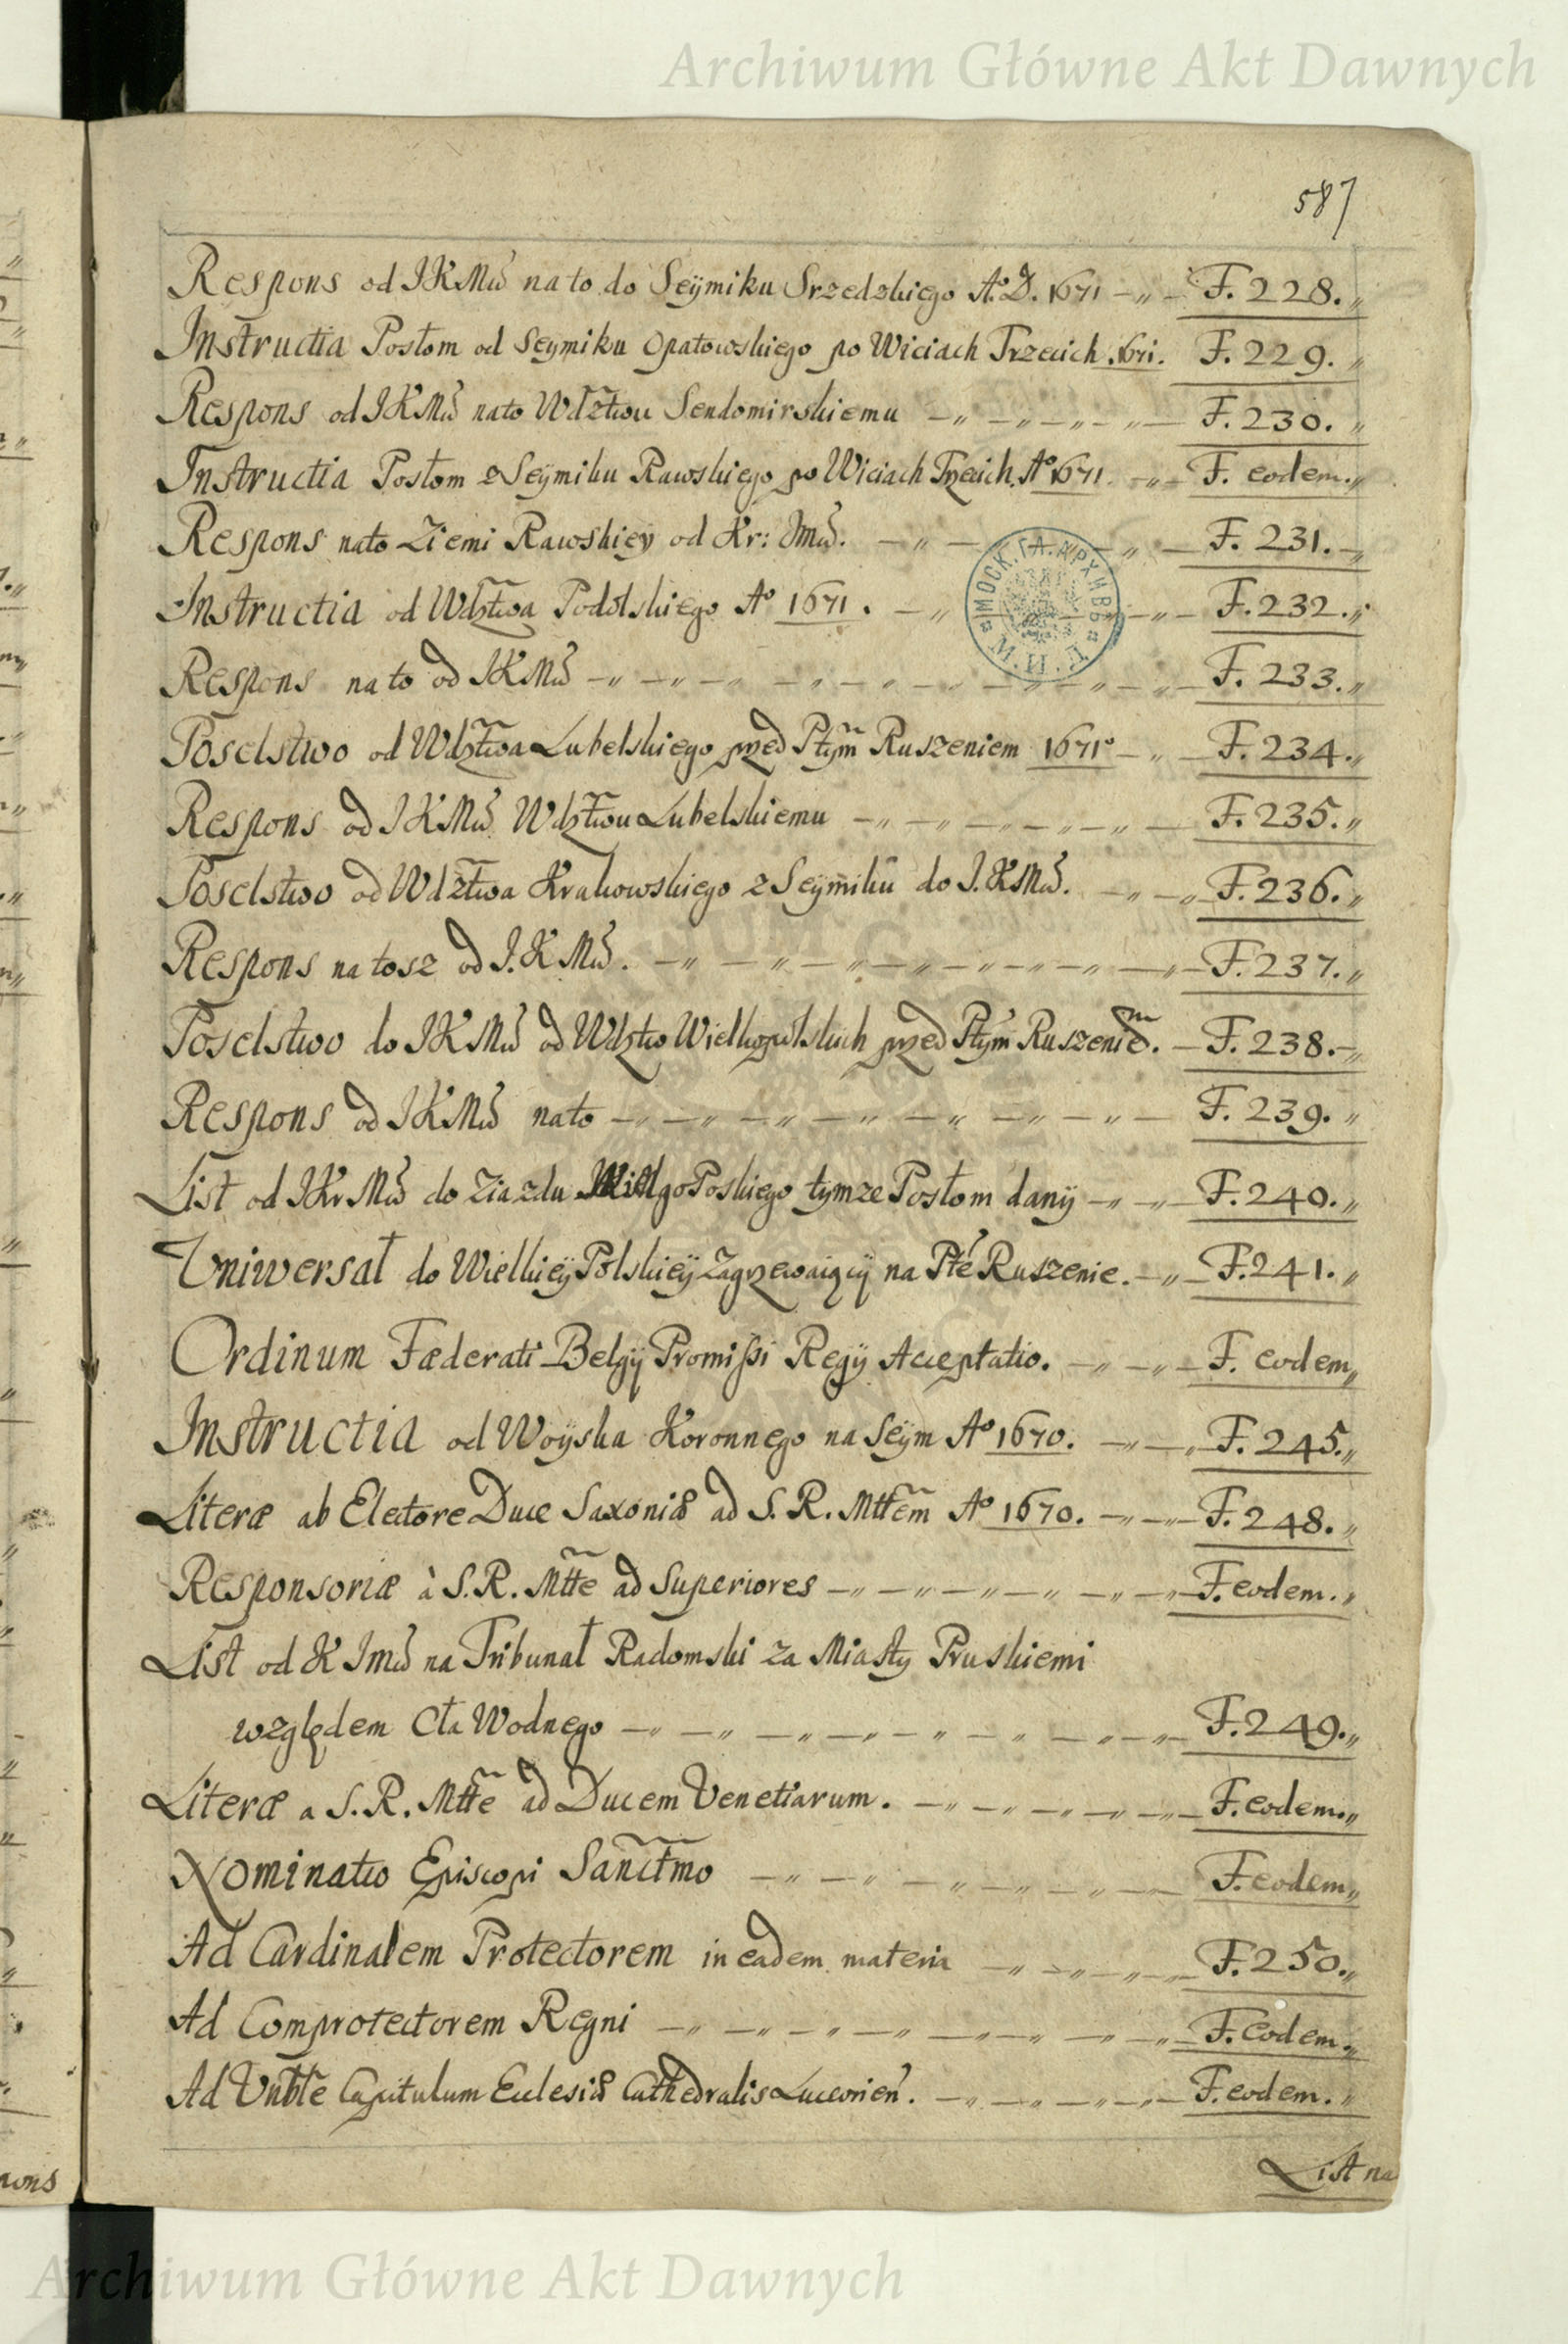 Archiwum Główne Akt Dawnych
587
Respons od JKMći na to do Seÿmiku Srzedzkiego A.º D. 1671 F. 228.
Instructia Posłom od Seymiku Opatowskiego po Wiciach Trzecich 1671. F. 229.
Respons od JKMći nato Wdztwu Sendomirskiemu F. 230.
Instructia Posłom z Seÿmiku Rawskiego po Wiciach Trzecich Aº 1671. F. eodem.
Respons nato Ziemi Rawskiey od Kr: Jmći. F. 231.
Instructia od Wdztwa Podolskiego Aº 1671. F. 232.
Respons na to od JKMći F. 233.
Poselstwo od Wdztwa Lubelskiego przed Ptym Ruszeniem 1671º F. 234.
Respons od JKMći Wdztwu Lubelskiemu F. 235.
Poselstwo od Wdztwa Krakowskiego z Seÿmiku do J.KMći. F. 236.
Respons na tosz od J.KMći. F. 237.
Poselstwo do JKMći od Wdztw Wielkopolskich przed Ptym Ruszeniem. F. 238.
Respons od JKMći nato F. 239.
List od JKrMći do Ziazdu WielgoPoskiego tymze Posłom danÿ F. 240.
Uniwersał do WielkieÿPolskieÿ Zagrzewaiącÿ na Pte Ruszenie. F. 241.
Ordinum Fæderati Belgÿ Promissi Regÿ Acceptatio. F. eodem
Instructia od Woÿska Koronnego na Seÿm Aº 1670. F. 245.
Literæ ab Electore Duce Saxoniæ ad S. R. Mttem Aº 1670. F. 248.
Responsoriæ à S. R. Mtte ad Superiores F. eodem.
List od K Jmći na Tribunał Radomski za Miasty Pruskiemi
względem Cła Wodnego F. 249.
Literæ a S. R. Mtte ad Ducem Venetiarum. F. eodem.
Nominatio Episcopi Sanctmo F. eodem
Ad Cardinalem Protectorem in eadem materia F. 250.
Ad Comprotectorem Regni F. eodem.
Ad Vnble Capitulum Ecclesiæ Cathedralis Luceorien. F. eodem.
List na
Archiwum Główne Akt Dawnych